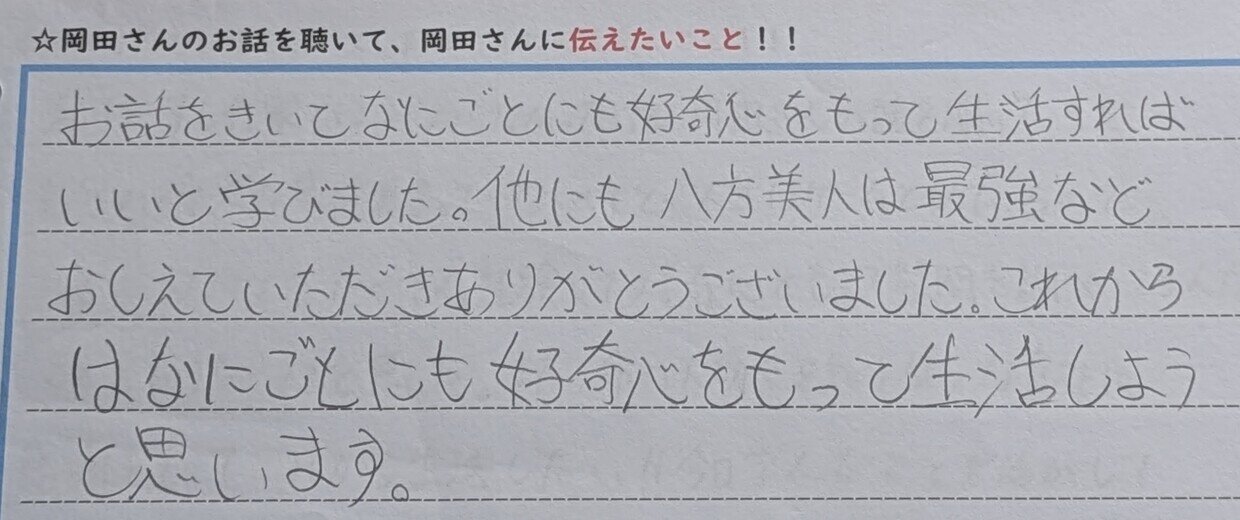 ☆岡田さんのお話を聴いて、岡田さんに伝えたいこと！！
お話をきいてなにごとにも好奇心をもって生活すれば
いいと学びました。他にも八方美人は最強など
おしえていただきありがとうございました。これから
はなにごとにも好奇心をもって生活しよう
と思います。